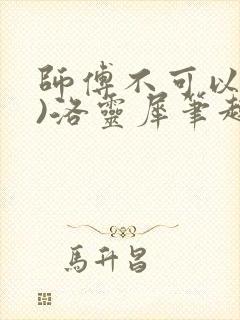 師傅不可以
)洛靈犀筆趣
馬升昌